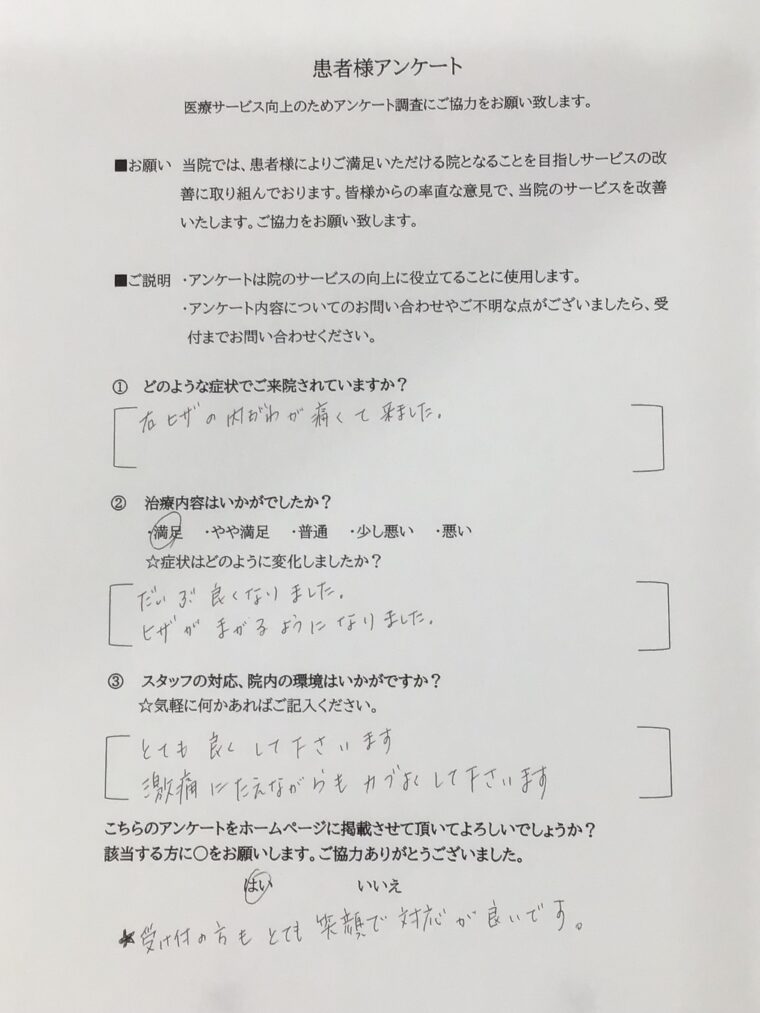 患者様アンケート
医療サービス向上のためアンケート調査にご協力をお願い致します。
■お願い 当院では、患者様によりご満足いただける院となることを目指しサービスの改
善に取り組んでおります。皆様からの率直な意見で、当院のサービスを改善
いたします。ご協力をお願い致します。
■ご説明 ・アンケートは院のサービスの向上に役立てることに使用します。
・アンケート内容についてのお問い合わせやご不明な点がございましたら、受
付までお問い合わせください。
① どのような症状でご来院されていますか？
右ヒザの内がわが痛くて来ました。
② 治療内容はいかがでしたか？
・満足 ・やや満足 ・普通 ・少し悪い ・悪い
☆症状はどのように変化しましたか？
だいぶ良くなりました。
ヒザがまがるようになりました。
③ スタッフの対応、院内の環境はいかがですか？
☆気軽に何かあればご記入ください。
とても良くして下さいます
激痛にたえながらも力づよくして下さいます
こちらのアンケートをホームページに掲載させて頂いてよろしいでしょうか？
該当する方に○をお願いします。ご協力ありがとうございました。
はい いいえ
★受け付の方もとても笑顔で対応が良いです。